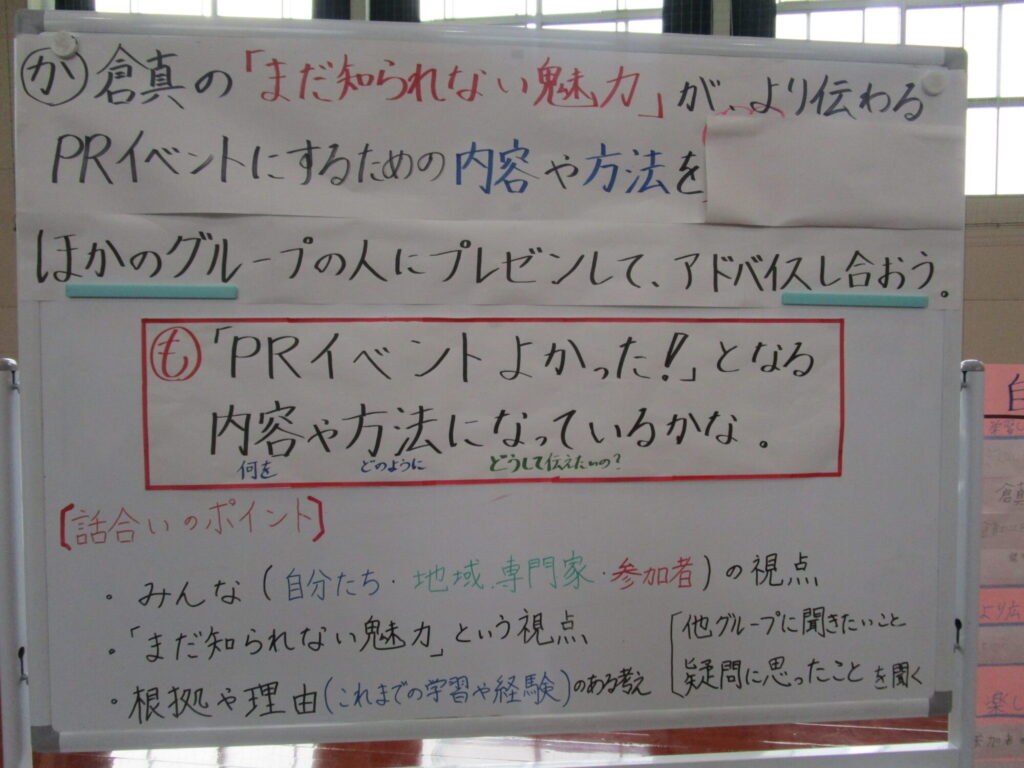 か 倉真の「まだ知られない魅力」が、より伝わる
PRイベントにするための内容や方法を
ほかのグループの人にプレゼンして、アドバイスし合おう。
も 「PRイベントよかった!」となる
内容や方法になっているかな。
何を どのように どうして伝えたいの?
[話合いのポイント]
・みんな(自分たち・地域、専門家・参加者)の視点
・「まだ知られない魅力」という視点
・根拠や理由(これまでの学習や経験)のある考え
他グループに聞きたいこと
疑問に思ったこと を聞く
倉真
より広
楽し
参加者